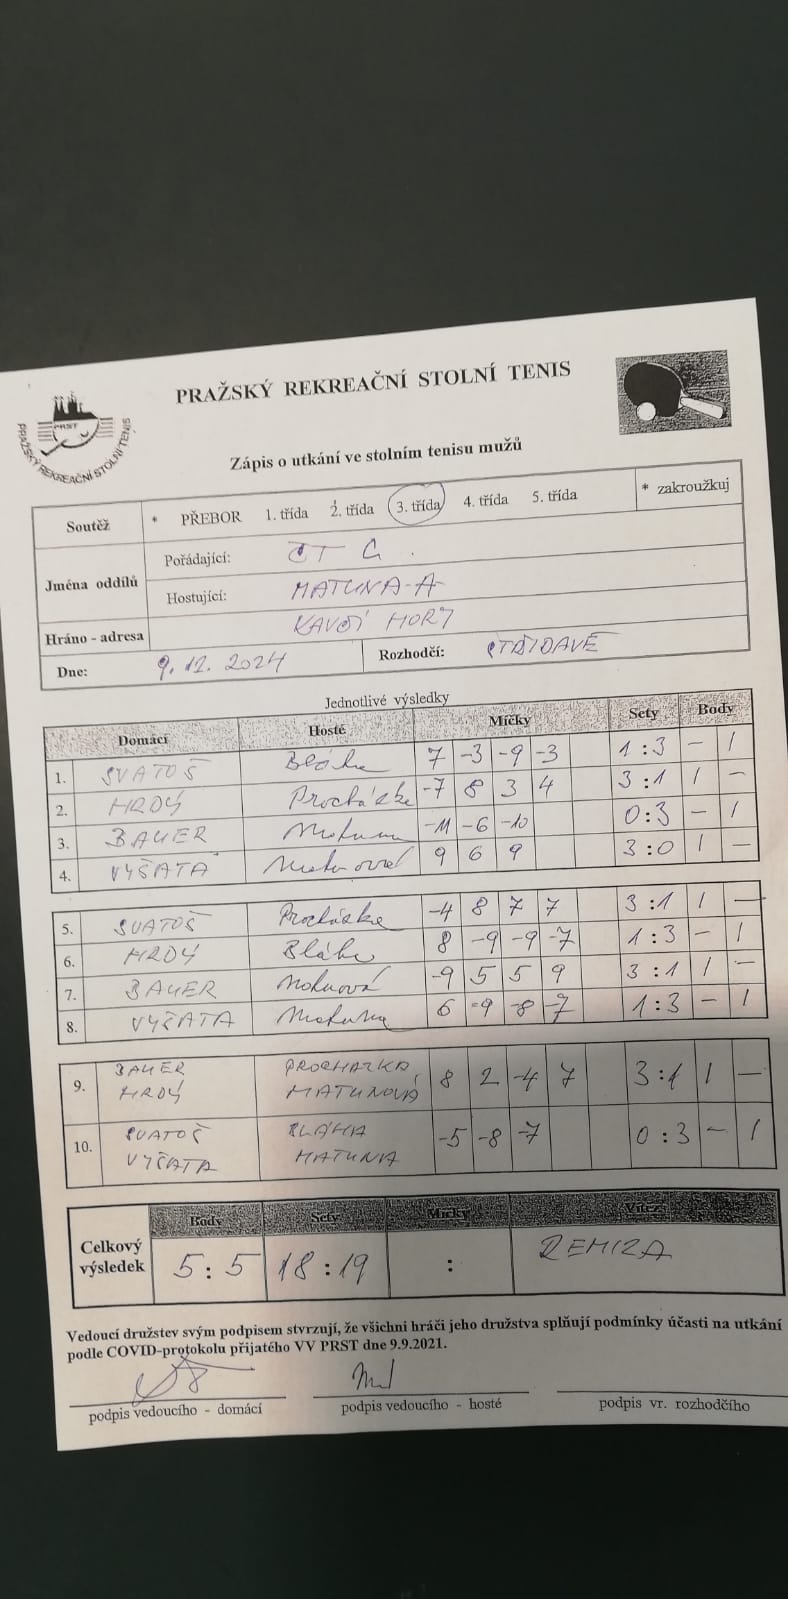 PRAŽSKÝ REKREAČNÍ STOLNÍ TENIS
PRST
PRAŽSKÝ REKREAČNÍ STOLNÍ TENIS
Zápis o utkání ve stolním tenisu mužů
Soutěž * PŘEBOR 1. třída 2. třída 3. třída 4. třída 5. třída * zakroužkuj
Jména oddílů
Pořádající: ČT G
Hostující: MATUNA-A
Hráno - adresa KAVČÍ HORY
Dne: 9.12. 2024 Rozhodčí: STŘÍDAVĚ
Jednotlivé výsledky
Domácí Hosté Míčky Sety Body
1. SVATOŠ Bláha 7 -3 -9 -3 1:3 - 1
2. HRDÝ Procházka -7 8 3 4 3:1 1 -
3. BAUER Matuna -11 -6 -10 0:3 - 1
4. VYŠATA Matunová 9 6 9 3:0 1 -
5. SVATOŠ Procházka -4 8 7 7 3:1 1 -
6. HRDÝ Bláha 8 -9 -9 -7 1:3 - 1
7. BAUER Matunová -9 5 5 9 3:1 1 -
8. VYŠATA Matuna 6 -9 -8 -7 1:3 - 1
9. BAUER PROCHÁZKA 8 2 -4 7 3:1 1 -
HRDÝ MATUNOVÁ
10. SVATOŠ BLÁHA -5 -8 -7 0:3 - 1
VYŠATA MATUNA
Body Sety Míčky Vítěz
Celkový výsledek 5:5 18:19 : REMIZA
Vedoucí družstev svým podpisem stvrzují, že všichni hráči jeho družstva splňují podmínky účasti na utkání
podle COVID-protokolu přijatého VV PRST dne 9.9.2021.
podpis vedoucího - domácí podpis vedoucího - hosté podpis vr. rozhodčího